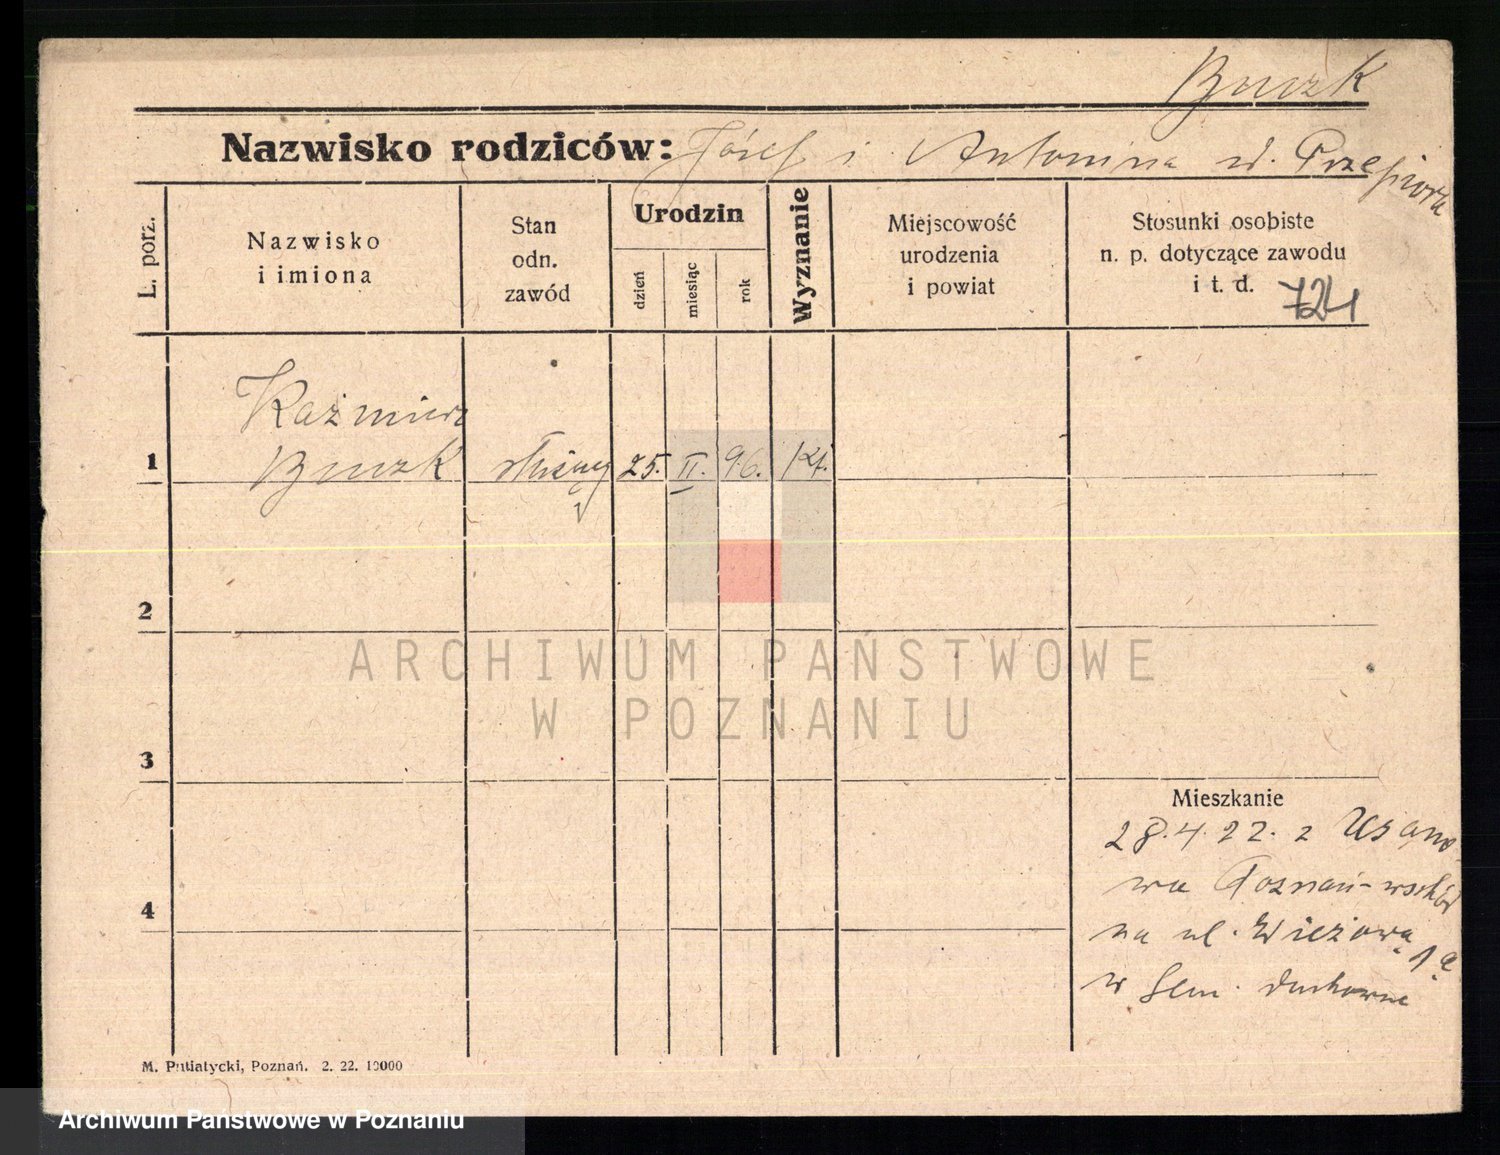 Buczk
Nazwisko rodziców: Józef i Antonina z d. Przepiora
L. porz.
Nazwisko
i imiona
Stan
odn.
zawód
Urodzin
dzień
miesiąc
rok
Wyznanie
Miejscowość
urodzenia
i powiat
Stosunki osobiste
n. p. dotyczące zawodu
i t. d.
724
Kaźmierz
1 Buczk służący 25. II. 96. kt.
2
ARCHIWUM PAŃSTWOWE
W POZNANIU
3
Mieszkanie
28.4.22. z
wa Poznań-wschód
4
na ul. Wieżową 1a
w Sem. duchowne
M. Putiatycki, Poznań. 2. 22. 10000
Archiwum Państwowe w Poznaniu